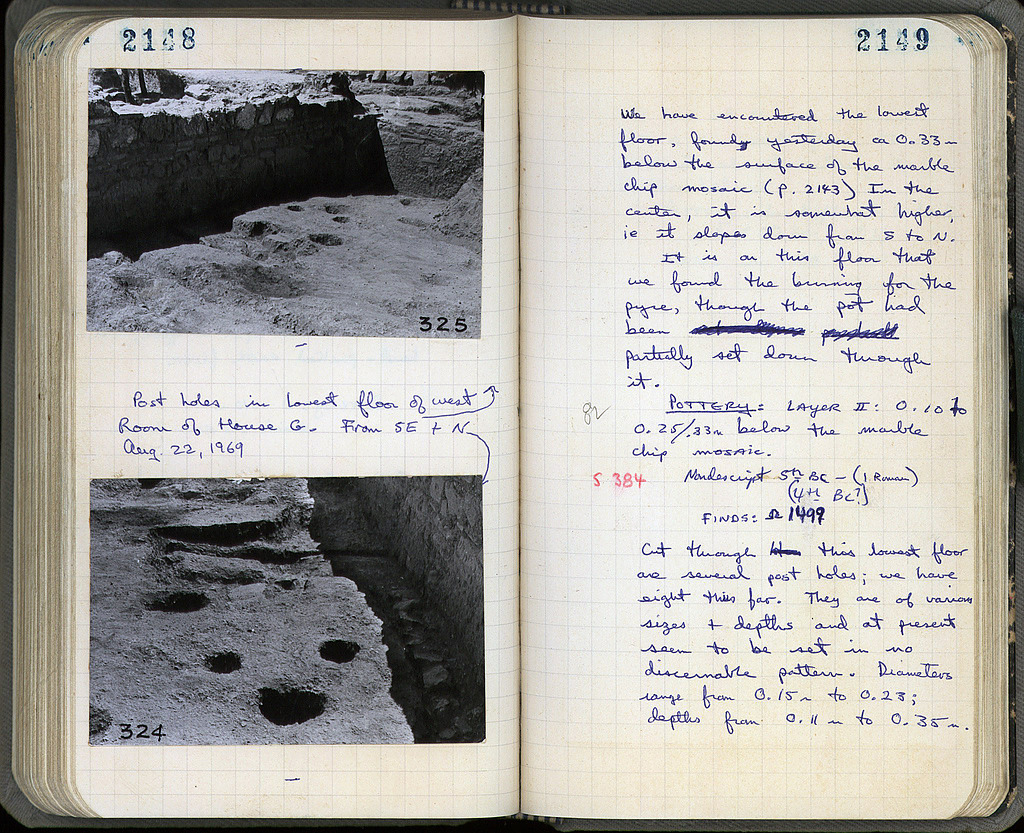 2148
325
Post holes in lowest floor of west
Room of House G. From SE + N
Aug. 22, 1969
324
2149
We have encountered the lowest
floor, found yesterday ca 0.33m
below the surface of the marble
chip mosaic (p. 2143) In the
center, it is somewhat higher,
ie it slopes down from S to N.
It is on this floor that
we found the burning for the
pyre, though the pot had
been
partially set down through
it.
82
POTTERY: LAYER II: 0.10 to
0.25/.33m below the marble
chip mosaic.
S 384
Nondescript 5th BC - (1 Roman)
(4th BC?)
FINDS: 1499
Cut through this lowest floor
are several post holes; we have
eight thus far. They are of various
sizes + depths and at present
seem to be set in no
discernable pattern. Diameters
range from 0.15m to 0.23;
depths from 0.11m to 0.35m.